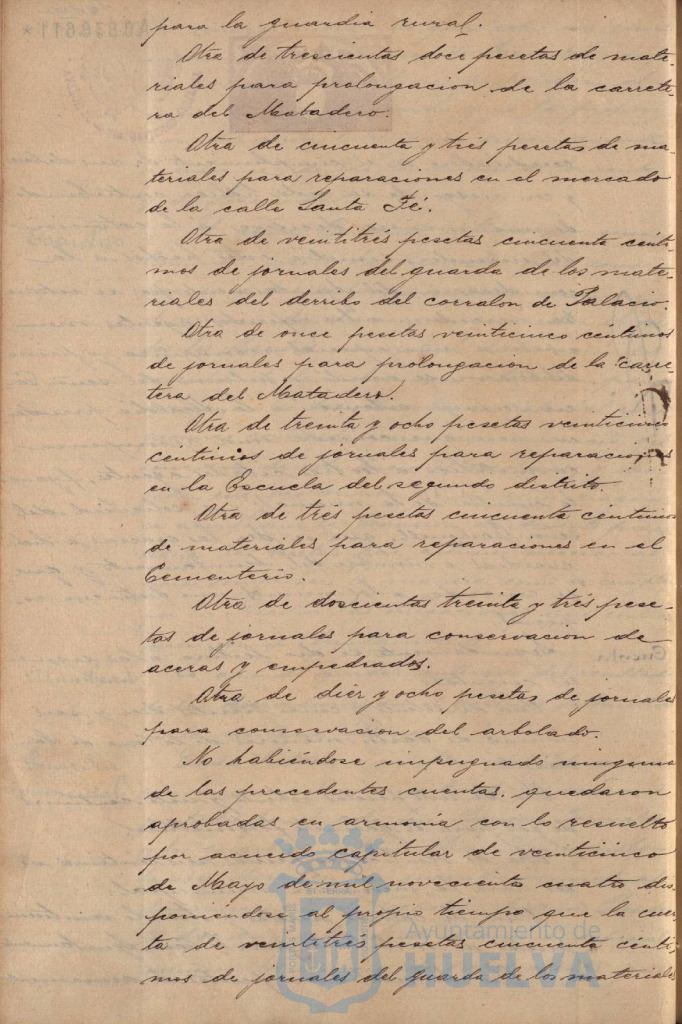 para la guardia rural.
Otra de trescientas doce pesetas de mate-
riales para prolongacion de la carrete-
ra del Matadero.
Otra de cincuenta y trés pesetas de ma-
teriales para reparaciones en el mercado
de la calle Santa Fé.
Otra de veintitrés pesetas cincuenta cénti-
mos de jornales del guarda de los mate-
riales del derribo del corralon de Palacio.
Otra de once pesetas veinticinco céntimos
de jornales para prolongacion de la carre-
tera del Matadero.
Otra de treinta y ocho pesetas veinticinco
céntimos de jornales para reparaciones
en la Escuela del segundo distrito.
Otra de trés pesetas cincuenta céntimos
de materiales para reparaciones en el
Cementerio.
Otra de doscientas treinta y trés pese-
tas de jornales para conservacion de
aceras y empedrados.
Otra de diez y ocho pesetas de jornales
para conservacion del arbolado.
No habiéndose impugnado ninguna
de las precedentes cuentas, quedaron
aprobadas en armonía con lo resuelto
por acuerdo capitular de veinticinco
de Mayo de mil novecientos cuatro dis-
poniendose al propio tiempo que la cuen-
ta de veintitrés pesetas cincuenta cénti-
mos de jornales del guarda de los materiales
Ayuntamiento de
HUELVA